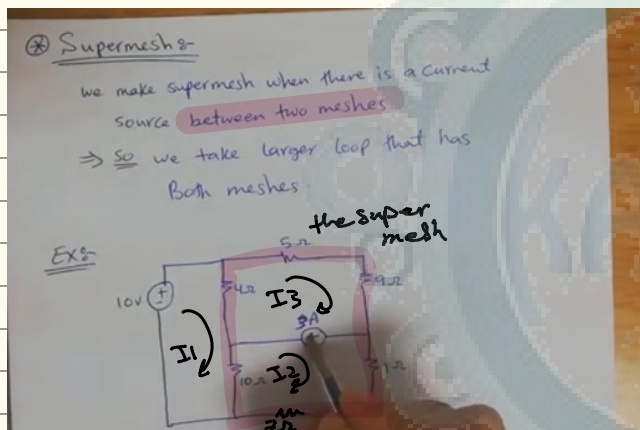 ⊛ Supermesh:-
we make supermesh when there is a current
source between two meshes
⇒ So we take larger loop that has
Both meshes.
the super
mesh
Ex:-
5Ω
10V
4Ω
I3
9Ω
3A
I1
10Ω
I2
1Ω